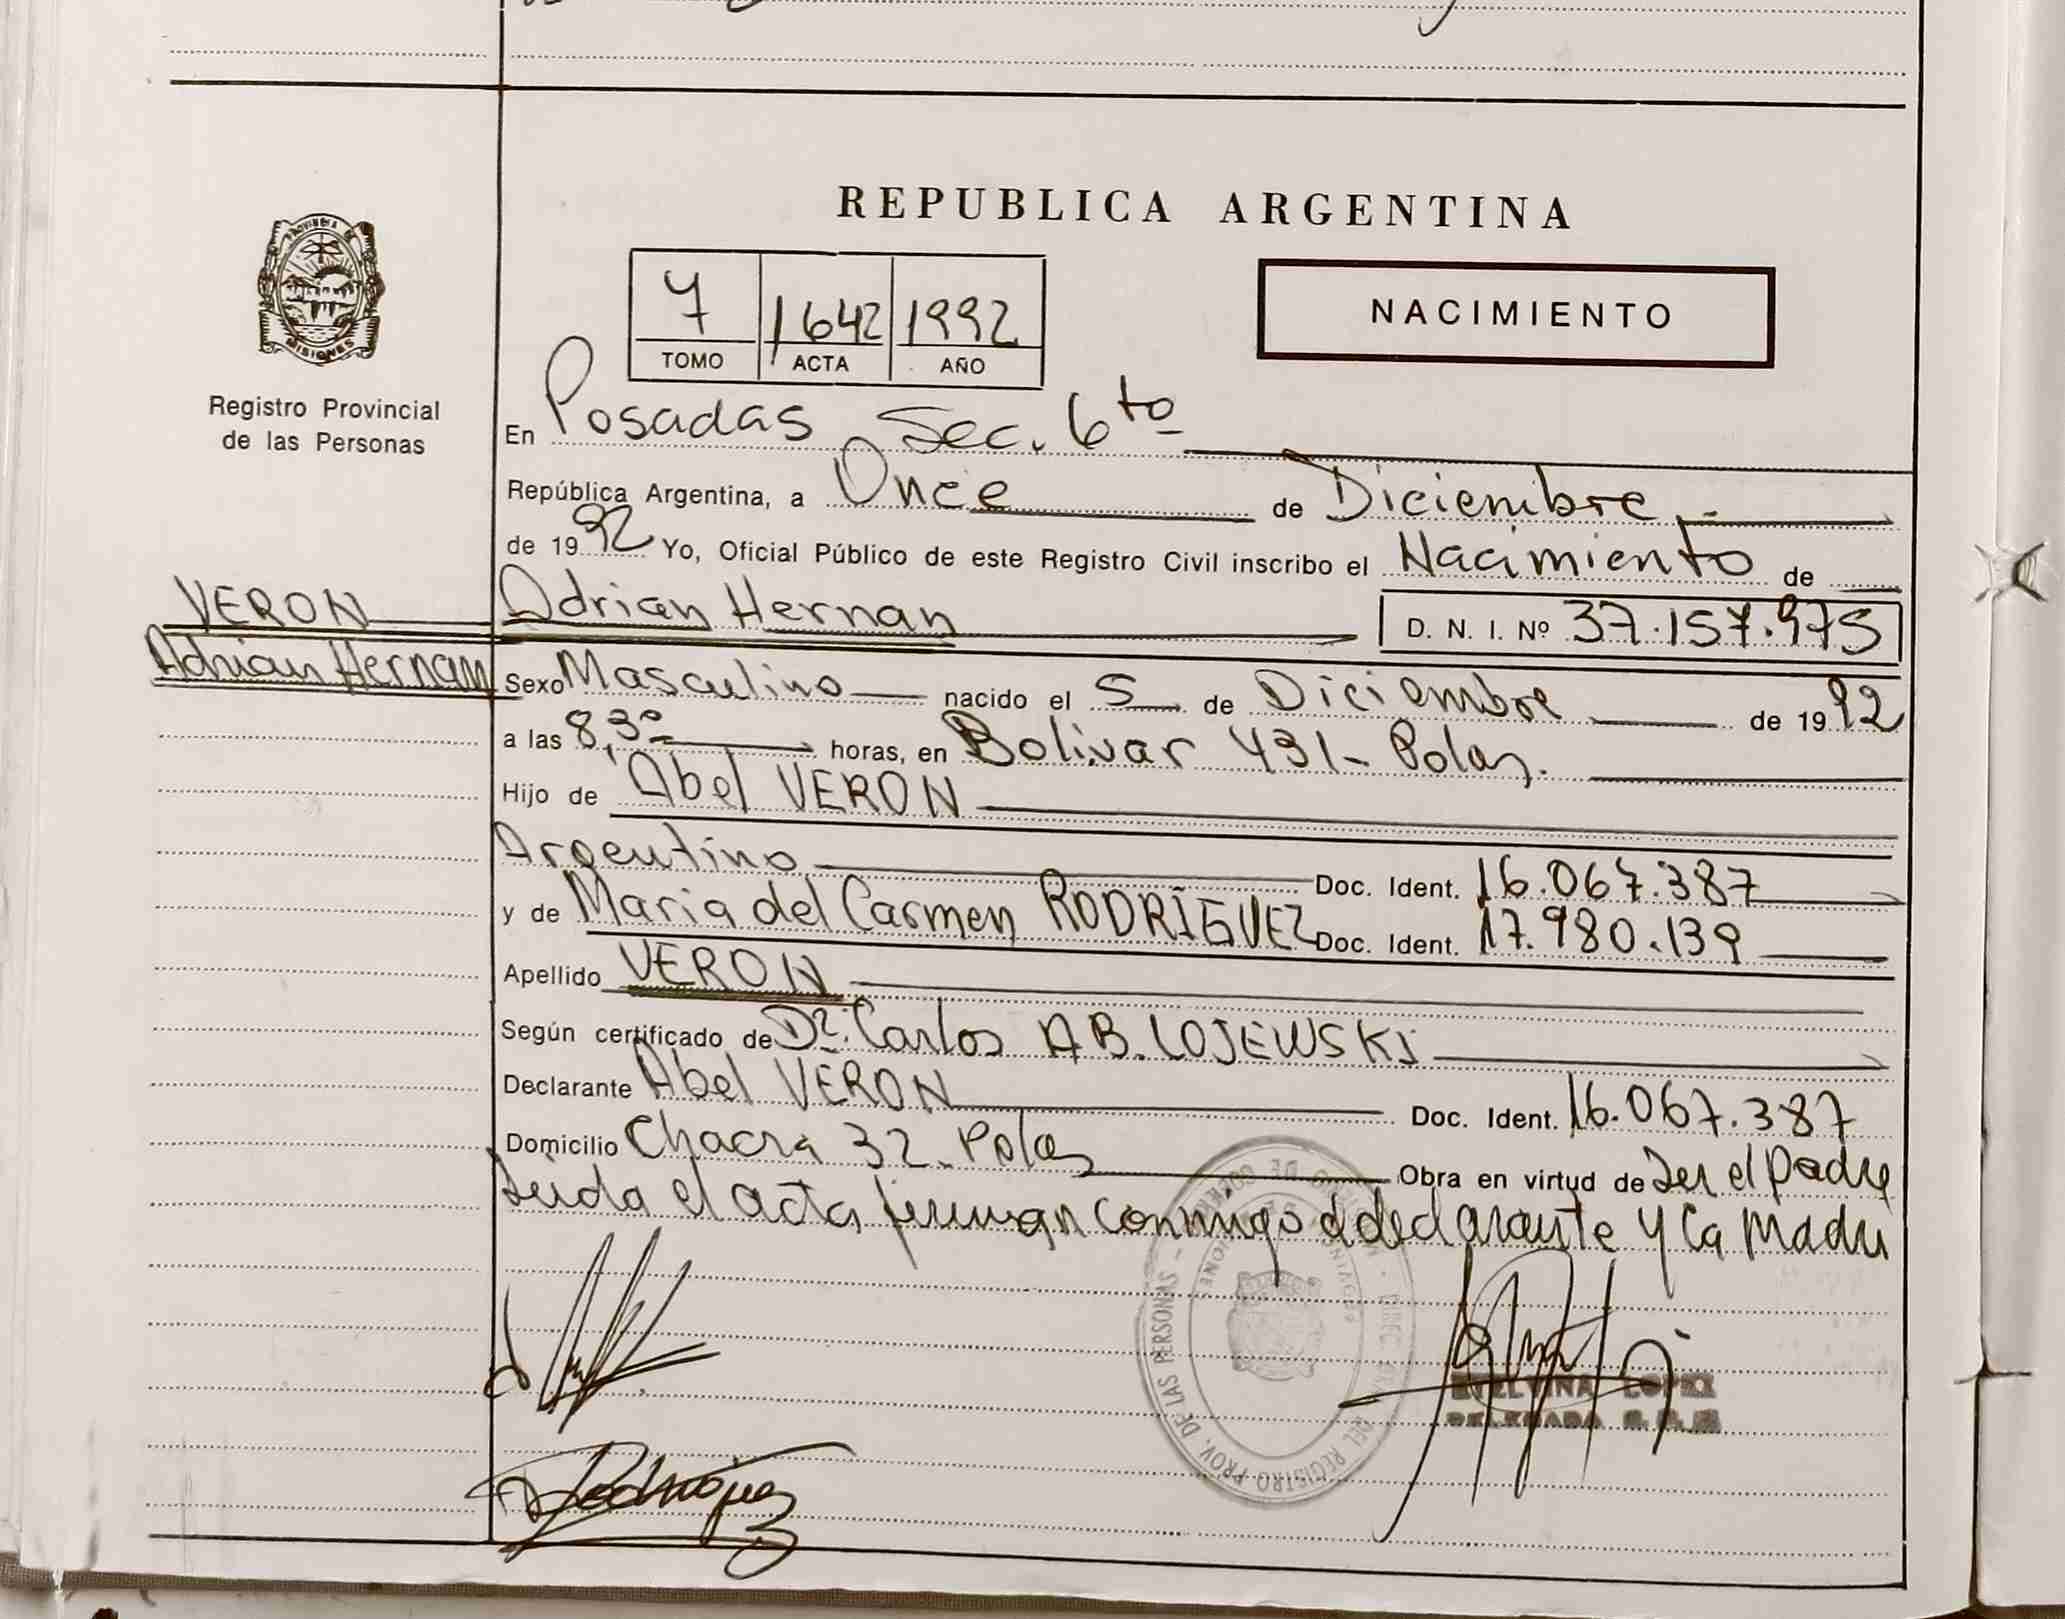 REPUBLICA ARGENTINA
PROVINCIA DE
MISIONES
Registro Provincial
de las Personas
7 1642 1992
TOMO ACTA AÑO
NACIMIENTO
En Posadas Sec. 6to
República Argentina, a Once de Diciembre
de 1992 Yo, Oficial Público de este Registro Civil inscribo el Nacimiento de
VERON
Adrian Hernan
Adrian Hernan D. N. I. Nº 37.157.975
Sexo Masculino nacido el 5 de Diciembre de 1992
a las 8,30 horas, en Bolivar 431- Pdas.
Hijo de Abel VERON
Argentino Doc. Ident. 16.067.387
y de Maria del Carmen RODRIGUEZ Doc. Ident. 17.980.139
Apellido VERON
Según certificado de Dr. Carlos AB. LOJEWSKI
Declarante Abel VERON Doc. Ident. 16.067.387
Domicilio Chacra 32- Pdas Obra en virtud de ser el padre
Leida el acta firman conmigo el declarante y la madre
DEL REGISTRO PROV. DE LAS PERSONAS
Rodriguez
ETELVINA LOPEZ
DELEGADA